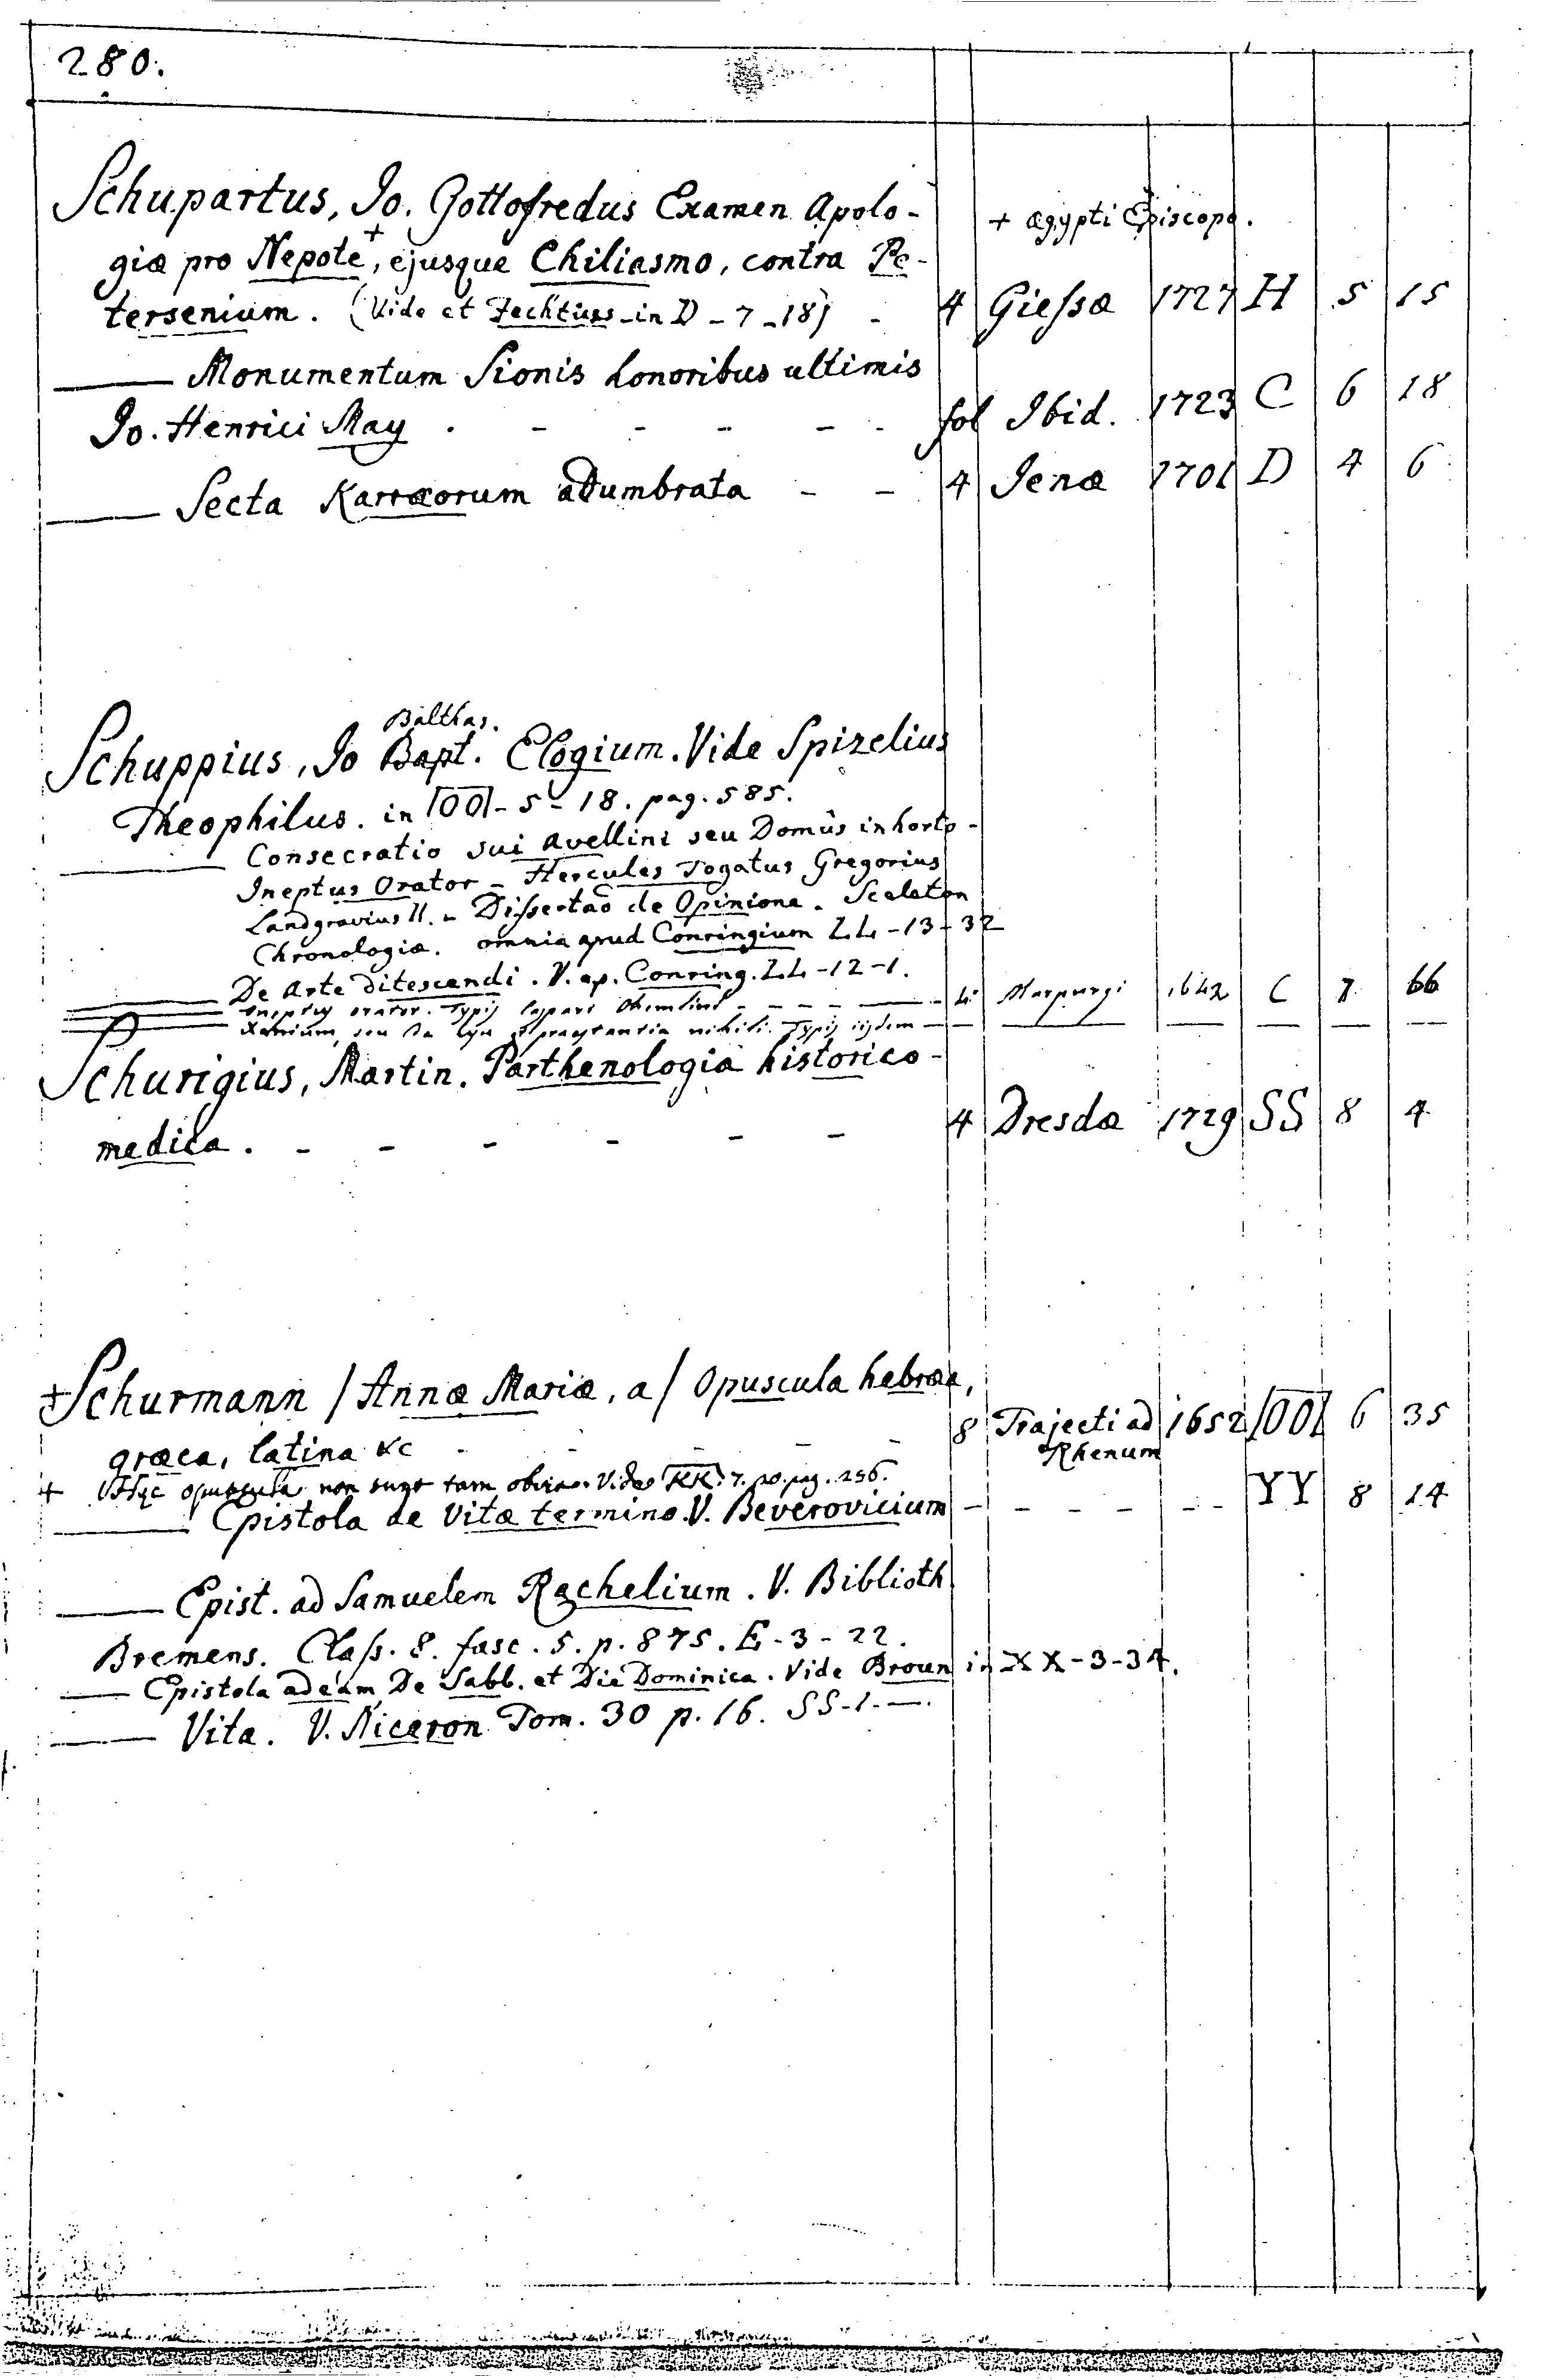 280.
Schupartus, Jo. Gottofredus Examen Apolo-
+ Ægypti Episcopo.
giæ pro Nepote +, ejusque Chiliasmo, contra Pe-
tersenium. (Vide et Fechtius in D - 7 - 18) - 4 Giessæ 1727 H 5 15
—— Monumentum Sionis honoribus ultimis
Jo. Henrici May . - - - - - fol Ibid. 1723 C 6 18
—— Secta Karræorum adumbrata - - 4 Jenæ 1701 D 4 6
Balthas.
Schuppius, Jo Bapt. Elogium. Vide Spizelius
Theophilus. in |OO| - 5 - 18. pag. 585.
—— Consecratio sui Avellini seu Domûs in horto -
Ineptus Orator - Hercules Togatus Gregorius
Landgravius II. - Dissertaõ de Opinione. Sceleton
Chronologiæ. omnia apud Conringium LL - 13 - 32
—— De Arte ditescendi. V. ap. Conring. LL - 12 - 1.
—— Ineptus orator. Typis Caspari - - - - 4 Marpurgi 1642 C 7 66
—— Xenium, seu de usu et præstantia nihili. Typis iisdem — — — — — — —
Schurigius, Martin. Parthenologia historico-
medica. - - - - - - 4 Dresdæ 1729 SS 8 4
+ Schurmann / Annæ Mariæ, a / Opuscula hebræa,
græca, latina &c - - - - 8 Trajecti ad Rhenum 1652 |OO| 6 35
+ Hæc opuscula non sunt tam obvia. Vide KK. 7. 20. pag. 256.
—— Epistola de Vitæ termino. V. Beverovicium - - - - - - YY 8 14
—— Epist. ad Samuelem Rachelium. V. Biblioth
Bremens. Class. 8. fasc. 5. p. 875. E - 3 - 22.
—— Epistola ad eam De Sabb. et Die Dominica. Vide Broun in XX - 3 - 34.
—— Vita. V. Niceron Tom. 30 p. 16. SS - 1 - —.